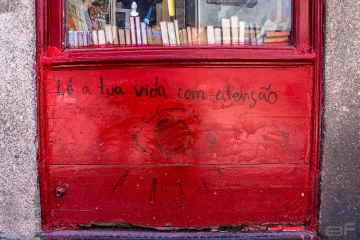 Lê a tua vida com atenção
EBF